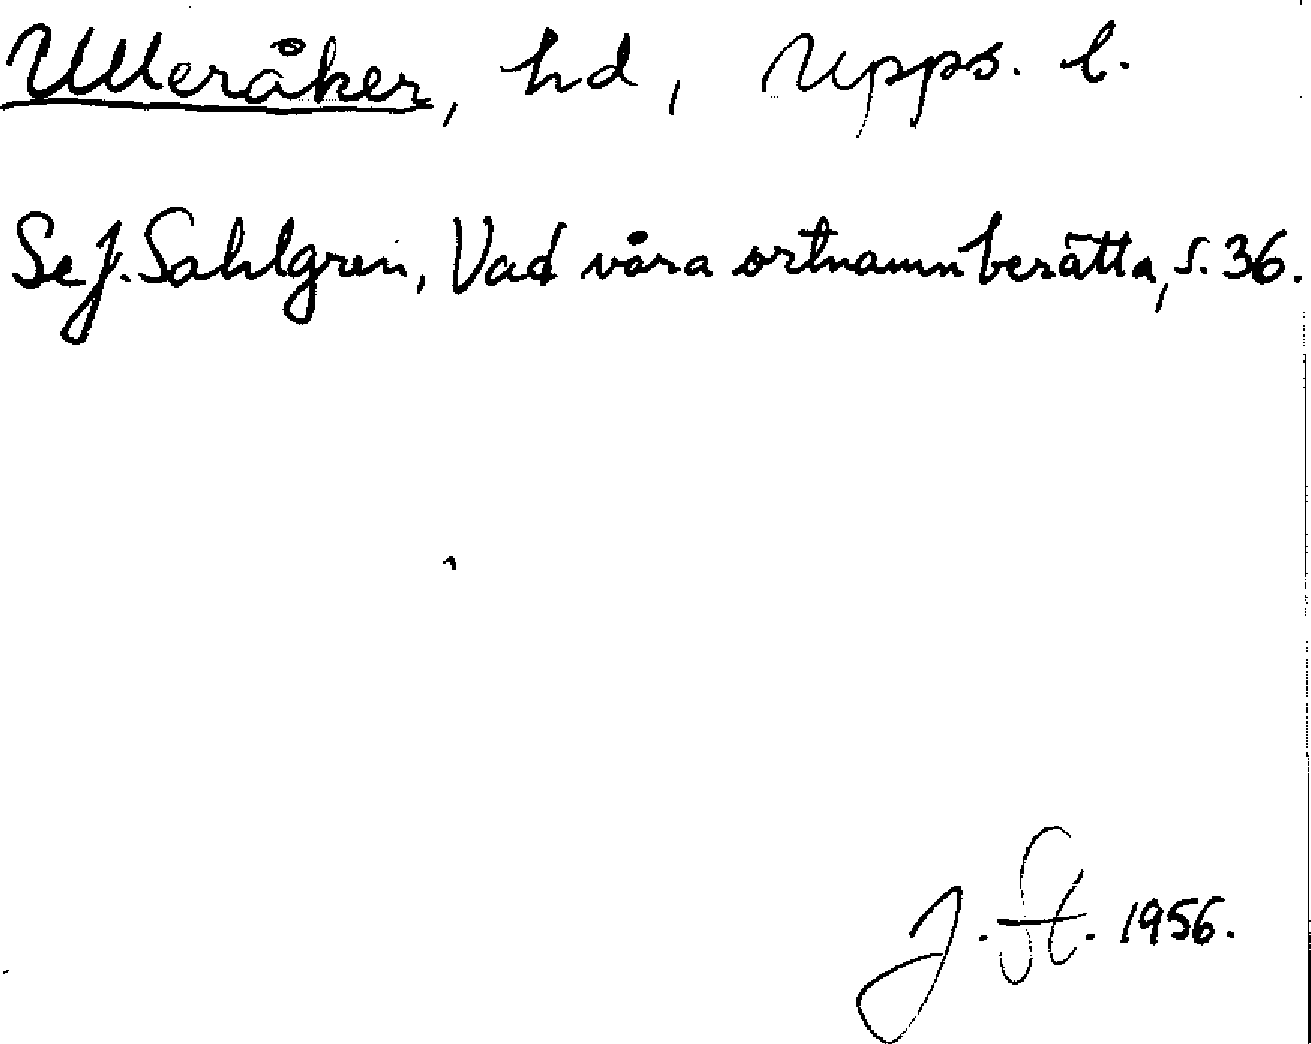 Ulleråker, hd, Upps. l.
Se J. Sahlgren, Vad våra ortnamn berätta, s. 36.
J. St. 1956.